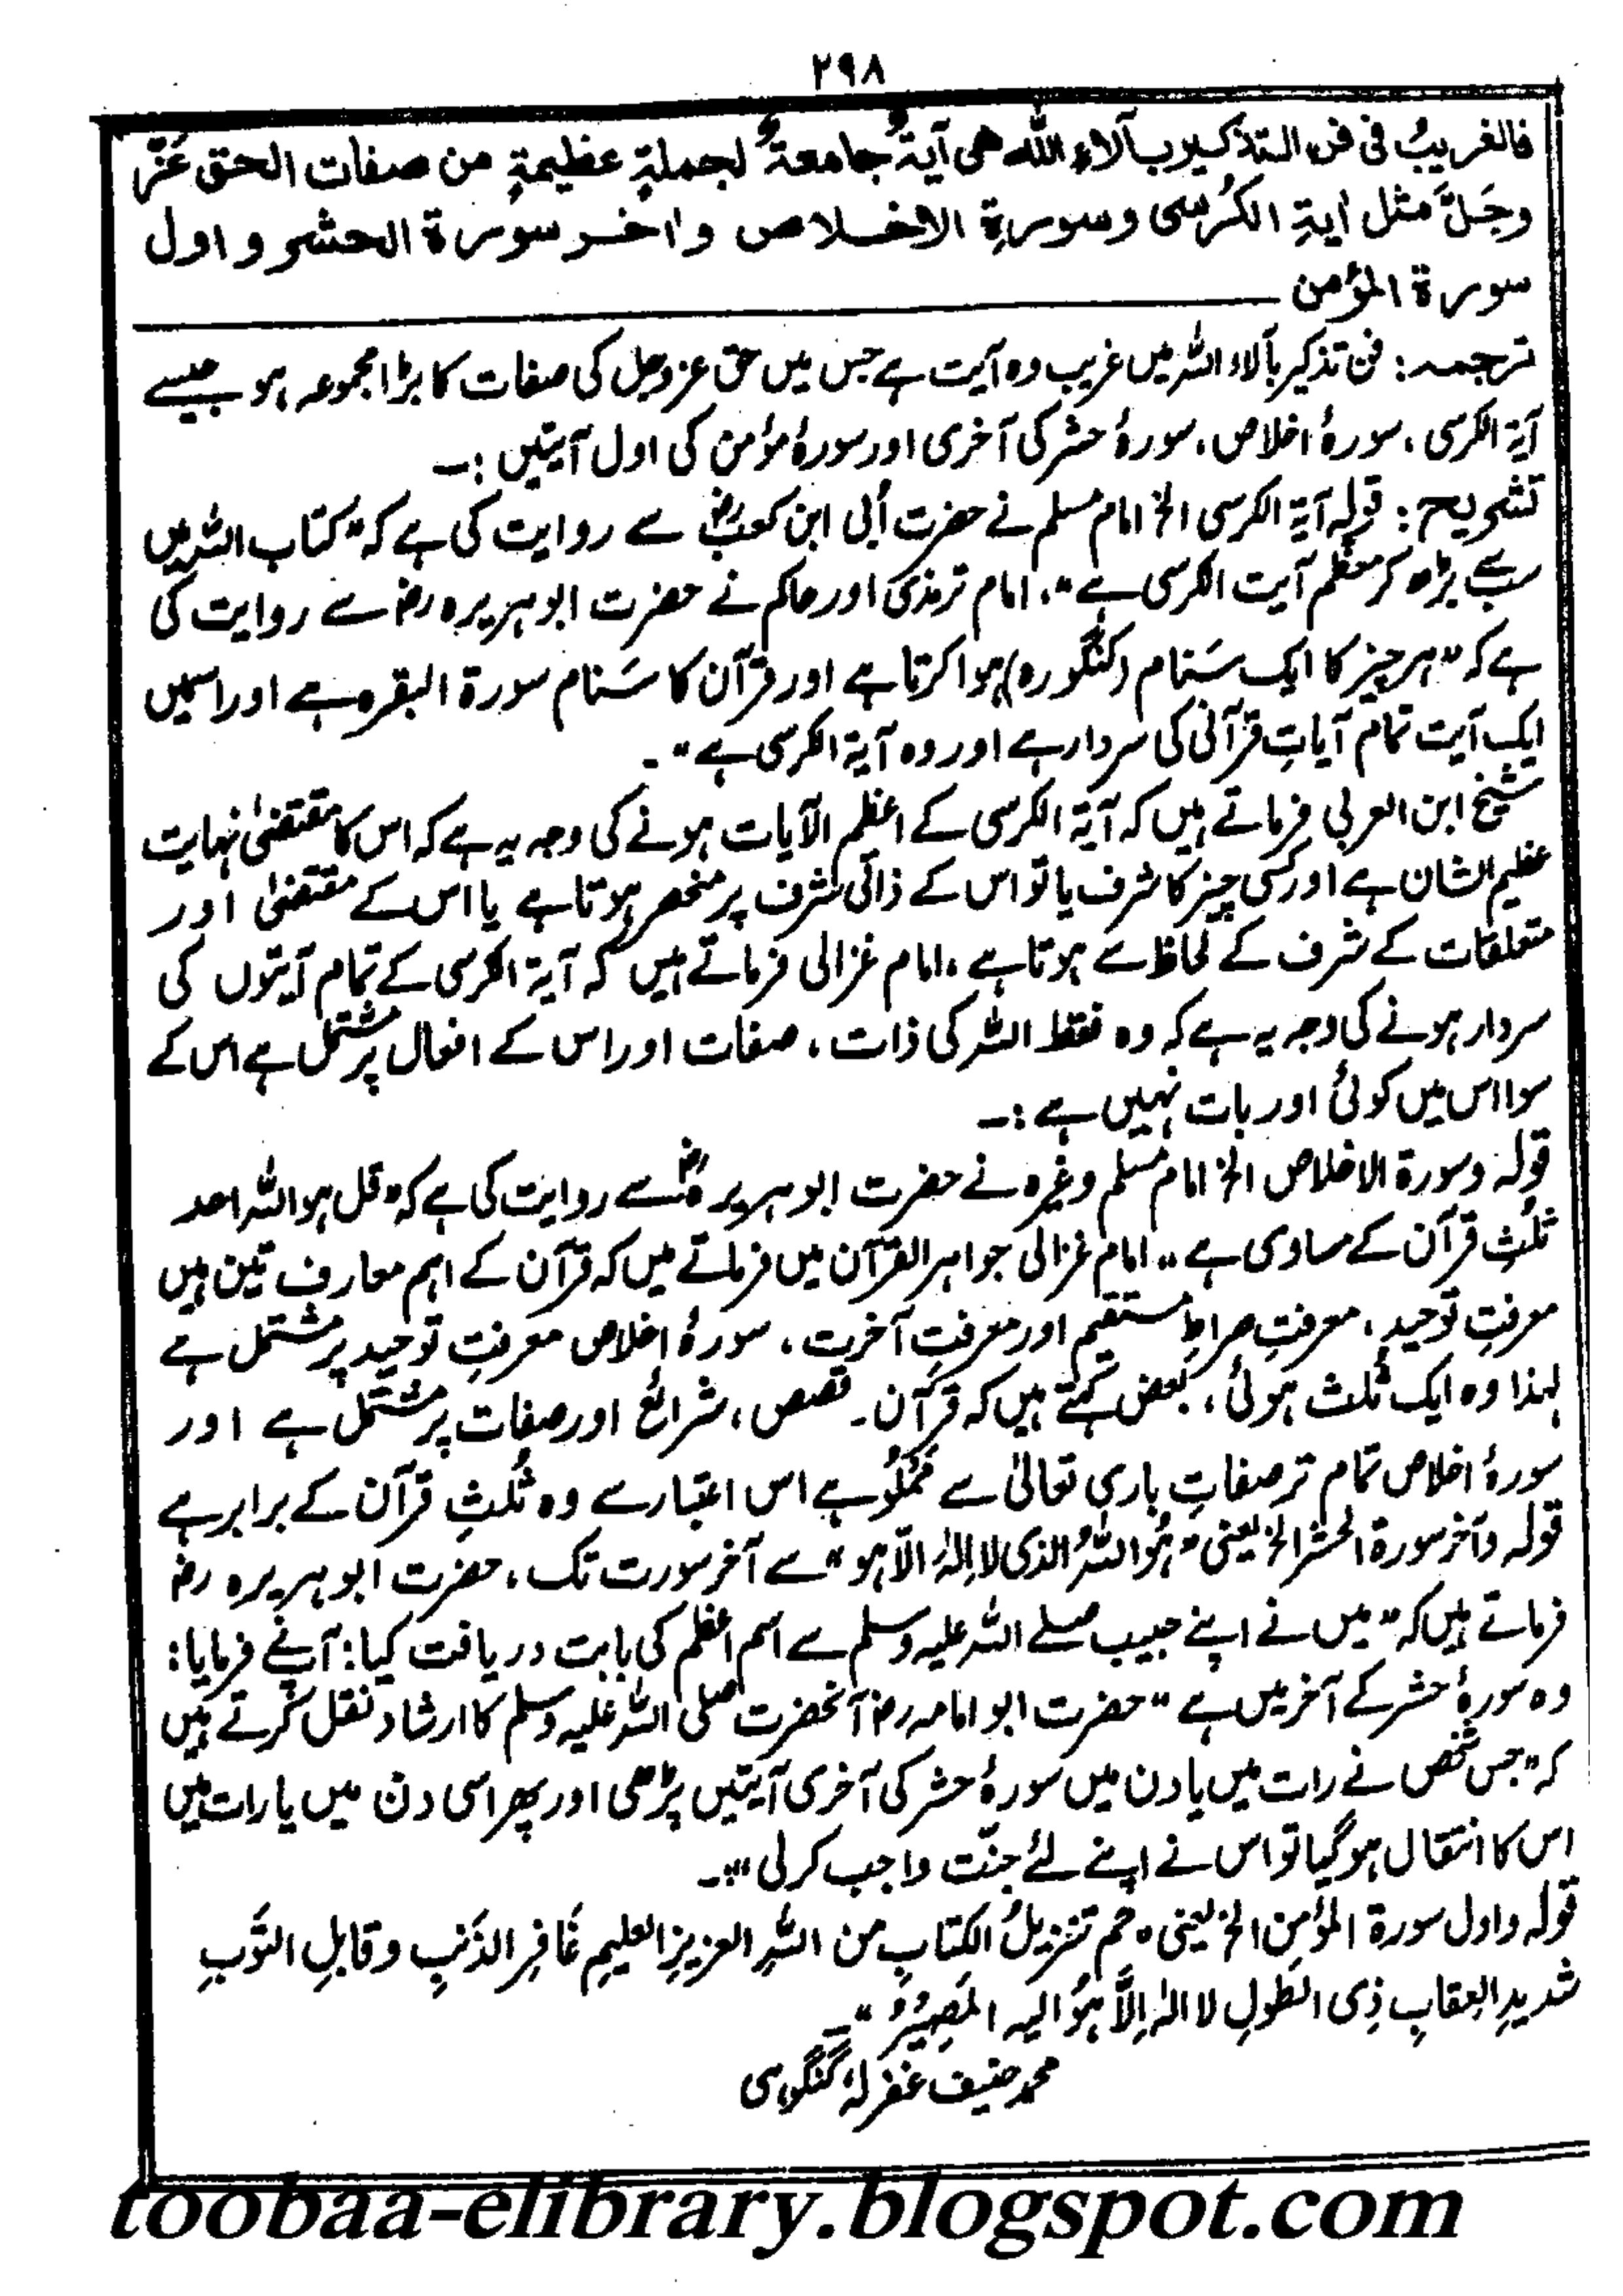 ۲۹۸
فالغريبُ في فن التذكير بآلاء الله هي آيةٌ جامعةٌ لجملةٍ عظيمةٍ من صفات الحق عَزَّ
وجَلَّ مثل اٰيةِ الكُرسى وسورةِ الاخلاص واٰخر سورة الحشر و اول
سورة المؤمن
ترجمہ: فن تذکیر بآلاء اللہ میں غریب وہ آیت ہے جس میں حق عزوجل کی صفات کا بڑا مجموعہ ہو جیسے
آیۃ الکرسی، سورۂ اخلاص، سورۂ حشر کی آخری اور سورۂ مؤمن کی اول آیتیں :۔
تشریح: قولہ آیۃ الکرسی الخ امام مسلم نے حضرت اُبی ابن کعبؓ سے روایت کی ہے کہ "کتاب اللہ میں
سب سے بڑھ کر معظم آیت الکرسی ہے"، امام ترمذی اور حاکم نے حضرت ابوہریرہ رضؓ سے روایت کی
ہے کہ "ہر چیز کا ایک سَنام (کنگورہ) ہوا کرتا ہے اور قرآن کا سَنام سورۃ البقرہ ہے اور اسمیں
ایک آیت تمام آیاتِ قرآنی کی سردار ہے اور وہ آیۃ الکرسی ہے"۔
شیخ ابن العربی فرماتے ہیں کہ آیۃ الکرسی کے اعظم الآیات ہونے کی وجہ یہ ہے کہ اس کا مقتضیٰ نہایت
عظیم الشان ہے اور کسی چیز کا شرف یا تو اس کے ذاتی شرف پر منحصر ہوتا ہے یا اس کے مقتضیٰ اور
متعلقات کے شرف کے لحاظ سے ہوتا ہے، امام غزالی فرماتے ہیں کہ آیۃ الکرسی کے تمام آیتوں کی
سردار ہونے کی وجہ یہ ہے کہ وہ فقط اللہ کی ذات، صفات اور اس کے افعال پر مشتمل ہے اس کے
سوا اس میں کوئی اور بات نہیں ہے :۔
قولہ وسورۃ الاخلاص الخ امام مسلم وغیرہ نے حضرت ابوہریرہؓ سے روایت کی ہے کہ "قل ہو اللہ احد
ثلُثِ قرآن کے مساوی ہے" امام غزالی جواہر القرآن میں فرماتے ہیں کہ قرآن کے اہم معارف تین ہیں
معرفتِ توحید، معرفتِ صراطِ مستقیم اور معرفتِ آخرت، سورۂ اخلاص معرفتِ توحید پر مشتمل ہے
لہذا وہ ایک ثُلث ہوئی، بعض کہتے ہیں کہ قرآن۔ قصص، شرائع اور صفات پر مشتمل ہے اور
سورۂ اخلاص تمام تر صفاتِ باری تعالیٰ سے مَمْلُوّ ہے اس اعتبار سے وہ ثُلثِ قرآن کے برابر ہے
قولہ وآخر سورۃ الحشر الخ یعنی "ہُوَ اللہُ الذی لا اِلٰہ الّا ہو" سے آخر سورت تک، حضرت ابوہریرہ رضؓ
فرماتے ہیں کہ "میں نے اپنے حبیب صلے اللہ علیہ وسلم سے اسم اعظم کی بابت دریافت کیا: آپ نے فرمایا:
وہ سورۂ حشر کے آخر میں ہے" حضرت ابو امامہ رضؓ آنحضرت صلی اللہ علیہ وسلم کا ارشاد نقل کرتے ہیں
کہ "جس شخص نے رات میں یا دن میں سورۂ حشر کی آخری آیتیں پڑھی اور پھر اسی دن میں یا رات میں
اس کا انتقال ہو گیا تو اس نے اپنے لئے جنّت واجب کر لی"۔
قولہ واول سورۃ المؤمن الخ یعنی "حم تنزیلُ الکتابِ من اللہِ العزیزِ العلیمِ غَافِرِ الذَنبِ وقابلِ التَوبِ
شدیدِ العقابِ ذِی الطَولِ لا الہَ اِلَّا ہُوَ الیہ المَصِیْرُ"۔
محمد حنیف غفرلہٗ گنگوہی
toobaa-elibrary.blogspot.com